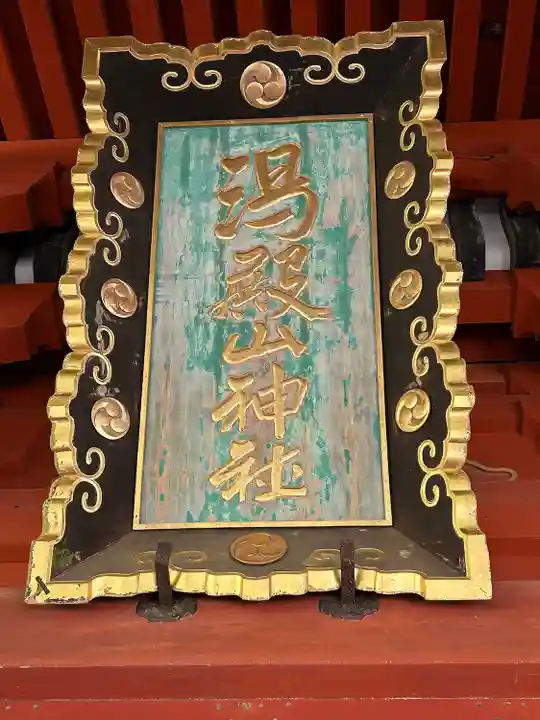 湯殿山神社